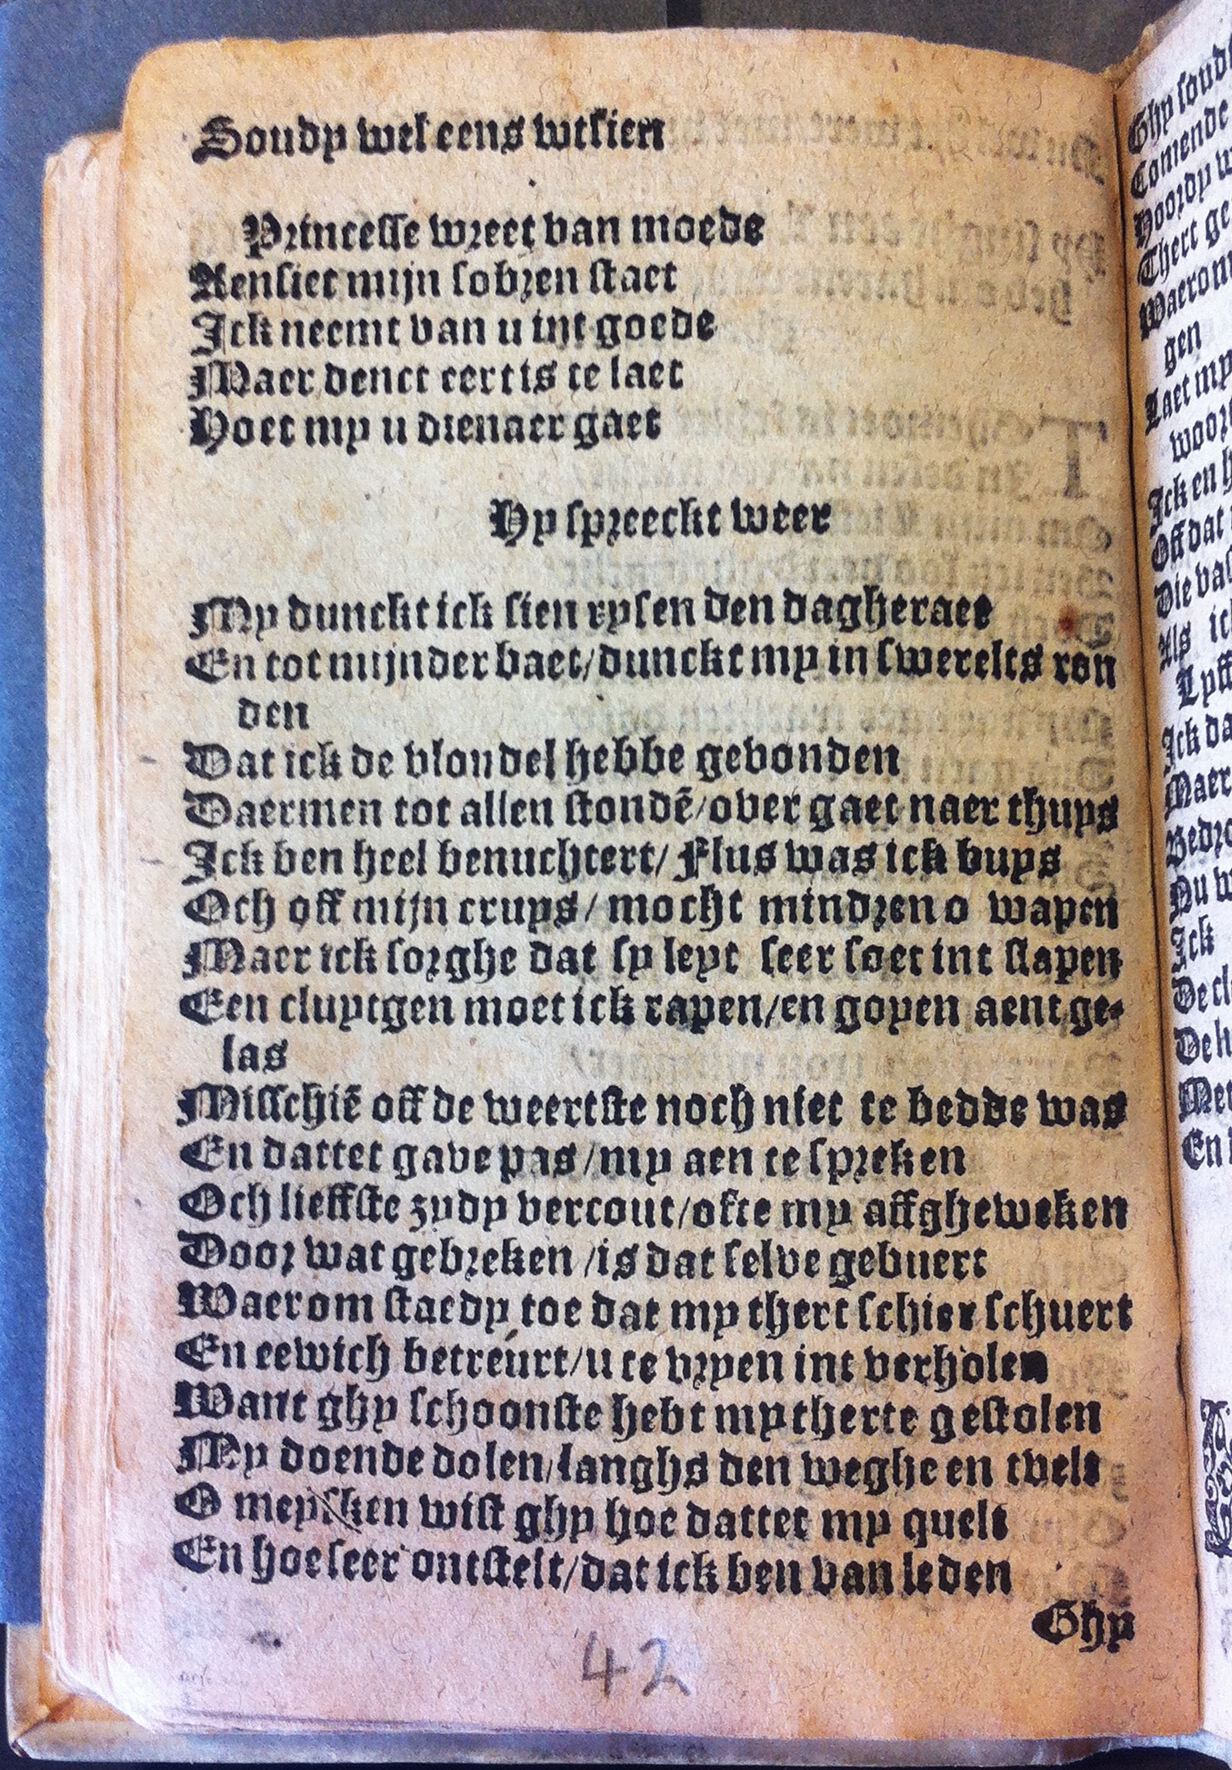 Soudy wel eens wtsien
Princesse wreet van moede
Aensiet mijn sobren staet
Ick neemt van u int goede
Maer denct eertis te laet
Hoet my u dienaer gaet
Hy spreeckt weer
My dunckt ick sien rysen den dagheraet
En tot mijnder baet/dunckt my in swerelts ron
den
Dat ick de vlondel hebbe gevonden
Daermen tot allen stondē/over gaet naer thuys
Ick ben heel benuchtert/ Flus was ick buys
Och off mijn cruys/ mocht mindren o wapen
Maer ick sorghe dat sy leyt seer soet int slapen
Een cluytgen moet ick rapen/en goyen aent ge-
las
Misschiē off de weertste noch niet te bedde was
En dattet gave pas/my aen te spreken
Och lieffste zydy vercout/ofte my affgheweken
Door wat gebreken/is dat selve gebuert
Waerom staedy toe dat my thert schier schuert
En eewich betreurt/u te vryen int verholen
Want ghy schoonste hebt my therte gestolen
My doende dolen/langhs den weghe en tvelt
O meysken wist ghy hoe dattet my quelt
En hoe seer ontstelt/dat ick ben van leden
Ghy
42
Ghy soud
Comende
Hoordy w
Thert ge
Waerom
gen
Laet my
woor
Ick en h
Off dat
Die vas
Als ic
Lyff
Ick da
Maer
Bedro
Nu w
Ick
De cl
De h
Met
En